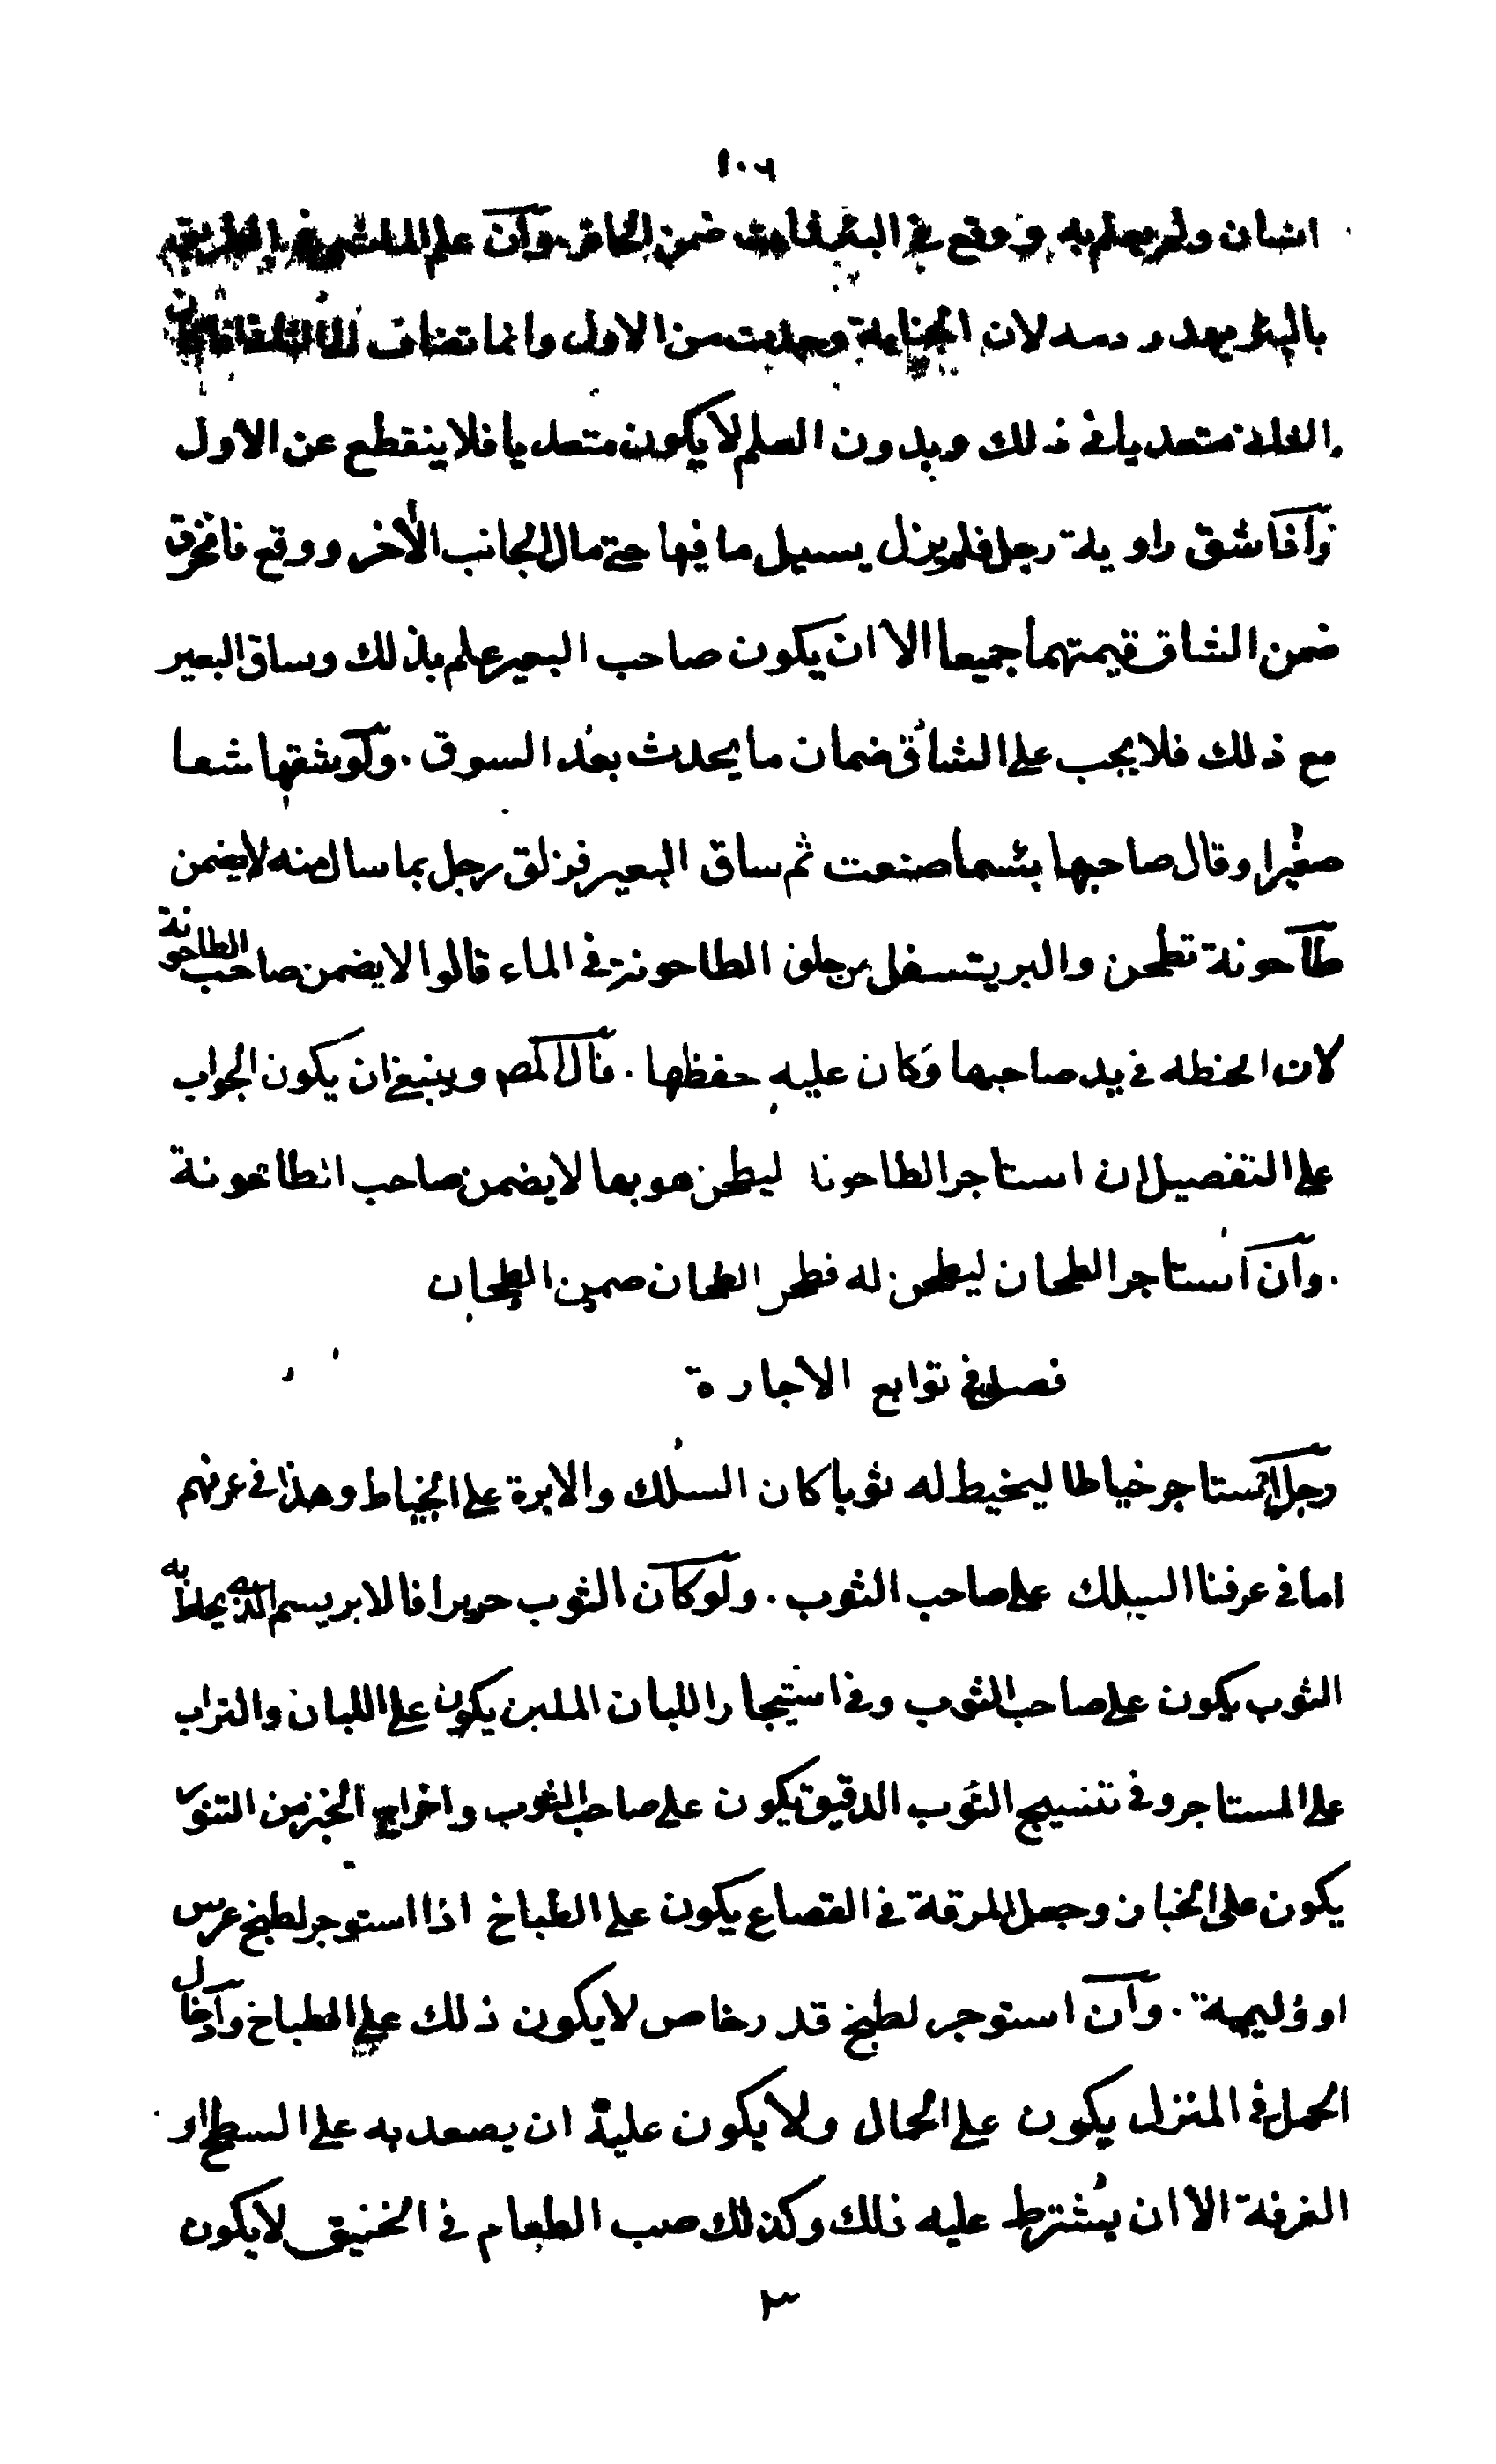 ١٠٦
انسان ولم يعلم به ووقع في البئر فمات ضمن الحافر وان علم الماشي في الطريق
بالبئر يهدر دمه لان الجناية وجدت من الاول وانما تضاف الى الثاني اذا كان
الثاني متعديا في ذلك وبدون العلم لا يكون متعديا فلا ينقطع عن الاول
واذا شق راوية رجل فلم يزل يسيل ما فيها حتى مال الجانب الاخر ووقع فانخرق
ضمن الشاق قيمتهما جميعا الا ان يكون صاحب البعير علم بذلك وساق البعير
مع ذلك فلا يجب على الشاق ضمان ما يحدث بعد السوق . ولو شقها شقا
صغيرا وقال صاحبها بئسما صنعت ثم ساق البعير فزلق رجل بما سال منه لا يضمن
طاحونة تطحن والبر يتسفل من الطاحونة في الماء قالوا لا يضمن صاحب الطاحونة
لان الحنطه في يد صاحبها وكان عليه حفظها . قال المص وينبغي ان يكون الجواب
على التفصيل ان استاجر الطاحونا ليطحن هو بها لا يضمن صاحب الطاحونة
. وان استاجر الطحان ليطحن له فطحن الطحان ضمن الطحان
فصل في توابع الاجارة
رجل استاجر خياطا ليخيط له ثوبا كان السلك والابرة على الخياط وهذا في عرفهم
اما في عرفنا السلك على صاحب الثوب . ولو كان الثوب حريرا فالابريسم الذي يخاط به
الثوب يكون على صاحب الثوب وفي استيجار اللبان الملبن يكون على اللبان والتراب
على المستاجر وفي تنسيج الثوب الدقيق يكون على صاحب الثوب واخراج الخبز من التنور
يكون على الخباز وجعل المرقة في القصاع يكون على الطباخ اذا استوجر لطبخ عرس
او وليمة . وان استوجر لطبخ قدر خاص لا يكون ذلك على الطباخ وادخال
الحمل في المنزل يكون على الحمال ولا يكون عليه ان يصعد به على السطح او
الغرفة الا ان يشترط عليه ذلك وكذلك صب الطعام في الخنيق لا يكون
٣